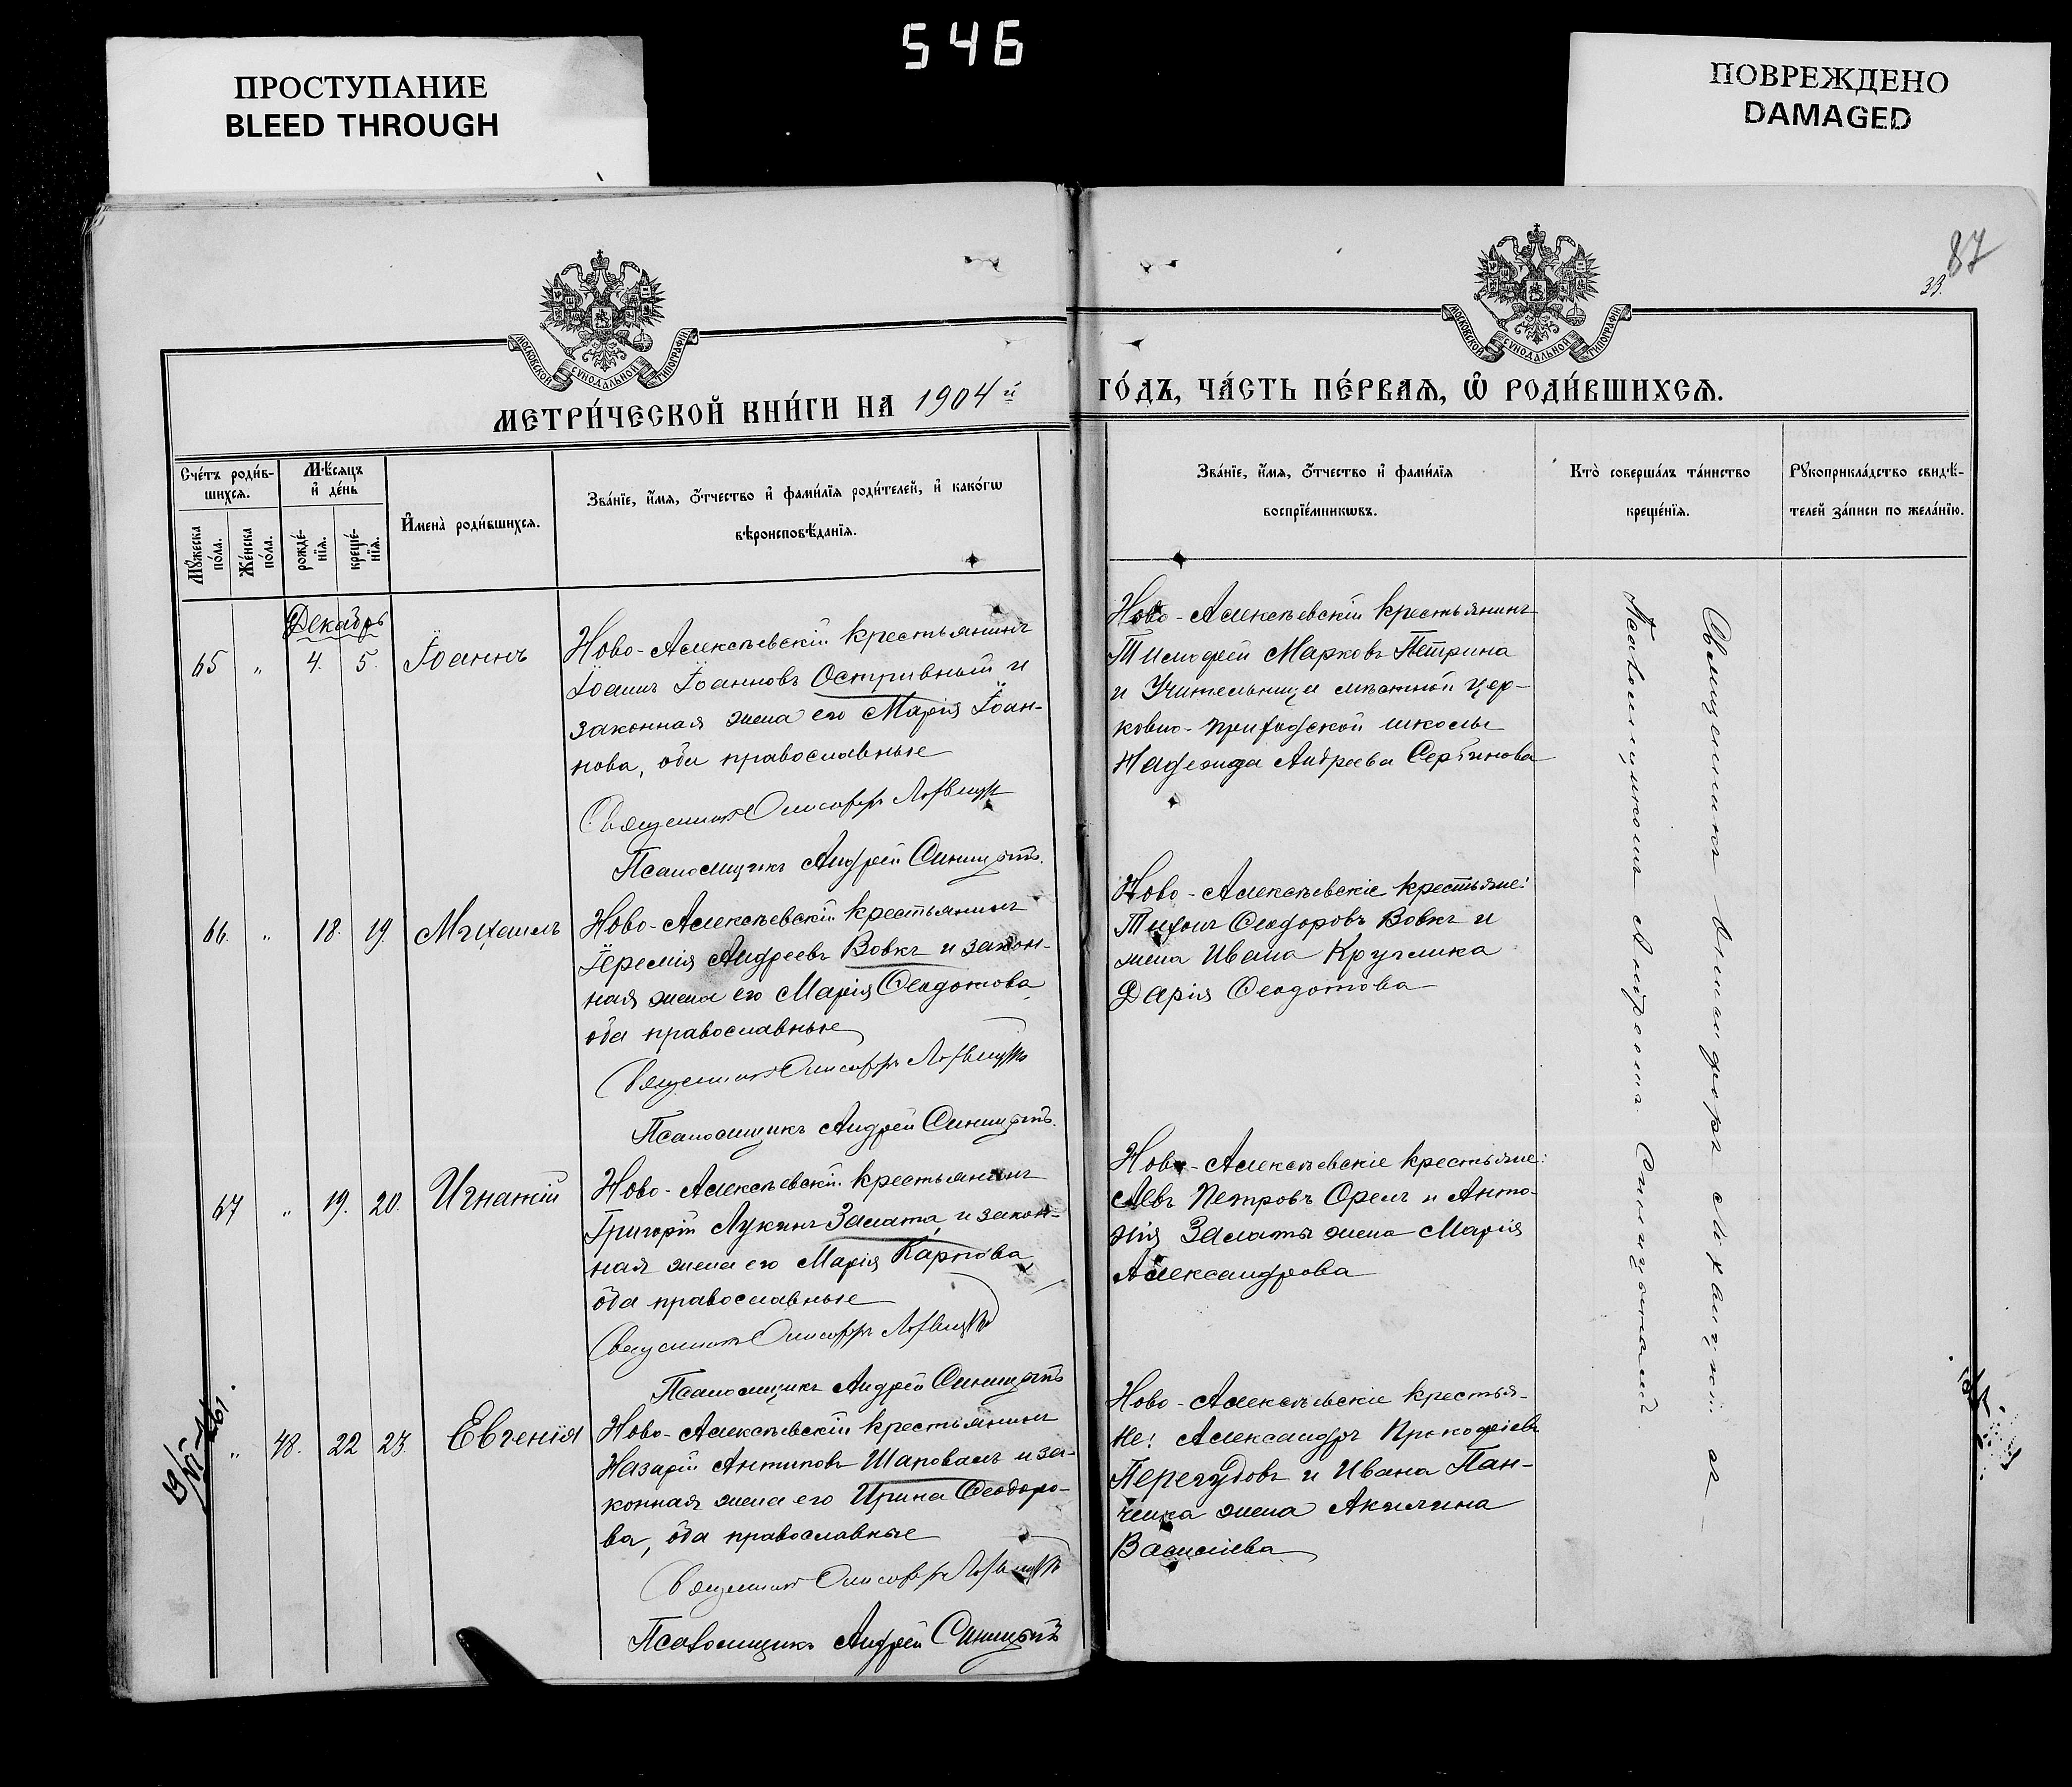 546
ПРОСТУПАНИЕ
BLEED THROUGH
ПОВРЕЖДЕНО
DAMAGED
87
33.
МОСКОВСКОЙ СѴНОДАЛЬНОЙ ТИПОГРАФІИ
МОСКОВСКОЙ СѴНОДАЛЬНОЙ ТИПОГРАФІИ
МЕТРИ́ЧЕСКОЙ КНИ́ГИ НА 1904й ГО́ДЪ, ЧА́СТЬ ПЕ́РВАЯ, Ѽ РОДИ́ВШИХСЯ.
Сче́тъ роди́в-
шихся.
Мѣ́сяцъ
и де́нь
Мꙋжеска по́ла.
Же́нска по́ла.
рожде́-
нїя.
креще́-
нїя.
Имена̀ роди́вшихся.
Зва́нїе, и́мя, о́тчество и фами́лїя роди́телей, и како́гѡ
вѣроисповѣ́данїя.
Зва́нїе, и́мя, о́тчество и фами́лїя
воспрїе́мникѡвъ.
Кто̀ соверша́лъ та́инство
креще́нїя.
Рꙋкоприкла́дство свидѣ́-
телей за́писи по жела́нїю.
Декабрь
65 „ 4. 5. Іоаннъ
Ново-Алексѣевскій крестьянинъ
Іоаннъ Іоанновъ Остривный и
законная жена его Марія Іоан-
нова, оба православные
Священникъ
Псаломщикъ Андрей Синицкій.
Ново-Алексѣевскій крестьянинъ
Тимофей Марковъ Петрина
и Учительница мѣстной цер-
ковно-приходской школы
Надежда Андреева Сербинова
66. „ 18. 19. Михаилъ
Ново-Алексѣевскій крестьянинъ
Іеремія Андреевъ Вовкъ и закон-
ная жена его Марія Феодотова
оба православные
Священникъ
Псаломщикъ Андрей
Ново-Алексѣевскіе крестьяне:
Тихонъ Феодоровъ Вовкъ и
жена Ивана Кручинка
Дарія Феодотова
67 „ 19. 20. Игнатій
Ново-Алексѣевскій крестьянинъ
Григорій Лукинъ Залата и закон-
ная жена его Марія Карпова
оба православные
Священникъ
Псаломщикъ Андрей
Ново-Алексѣевскіе крестьяне:
Левъ Петровъ Орелъ и Анто-
нія Залаты жена Марія
Александрова
„ 48. 22 23. Евгенія
Ново-Алексѣевскій крестьянинъ
Назарій Антиповъ Шаповалъ и за-
конная жена его Ирина Феодоро-
ва, оба православные
Священникъ
Псаломщикъ Андрей
Ново-Алексѣевскіе крестья-
не: Александръ Прокофіевъ
Перегудовъ и Ивана Пан-
ченка жена Акилина
Василіева
Священникъ съ
Псаломщикомъ Андреемъ